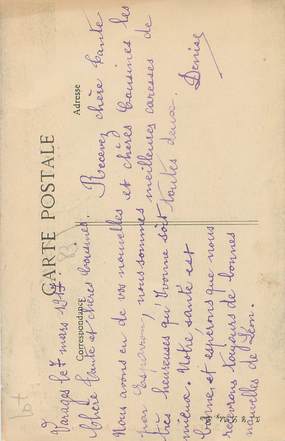 CARTE POSTALE
Correspondance
Adresse
Varages le 7 mars 1917.
Chère tante et chères cousines.
Nous avons eu de vos nouvelles
par nous sommes
très heureuses qu'Yvonne soit
mieux. Notre santé est
bonne, et espérons que nous
recevrons toujours de bonnes
nouvelles de Léon.
Recevez chère tante
et chères cousines les
meilleures caresses de
toutes deux.
Denise